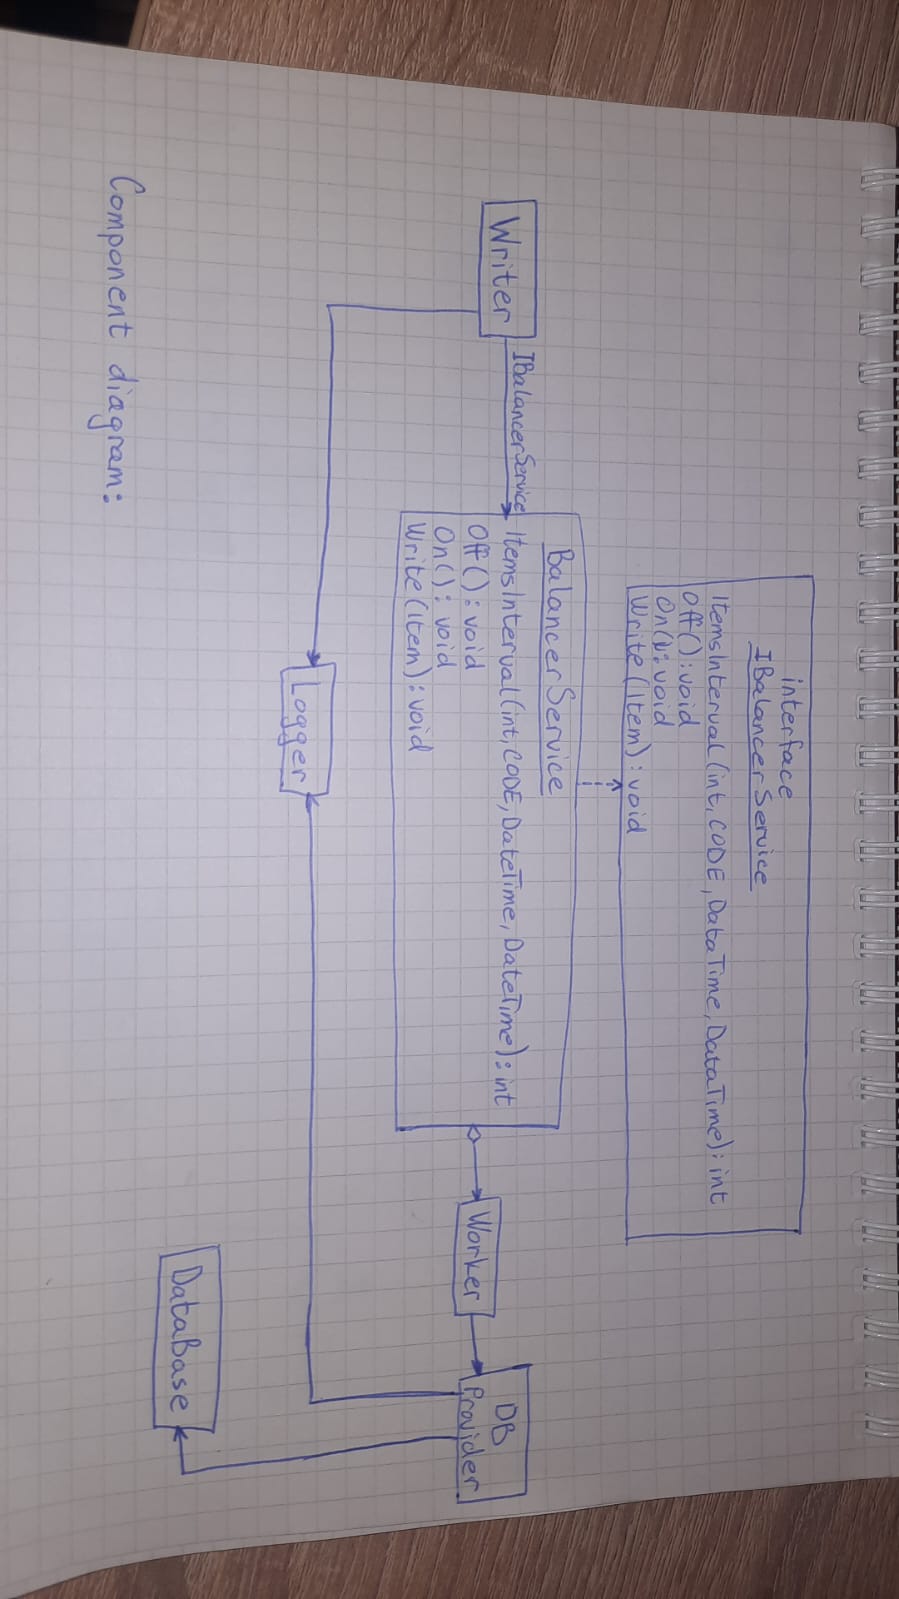 interface
IBalancerService
ItemsInterval(int,CODE,DataTime,DataTime):int
Off():void
On():void
Write(Item):void
Writer
IBalancerService
BalancerService
ItemsInterval(int,CODE,DateTime,DateTime):int
Off():void
On():void
Write(Item):void
Worker
DB
Provider
Logger
DataBase
Component diagram: